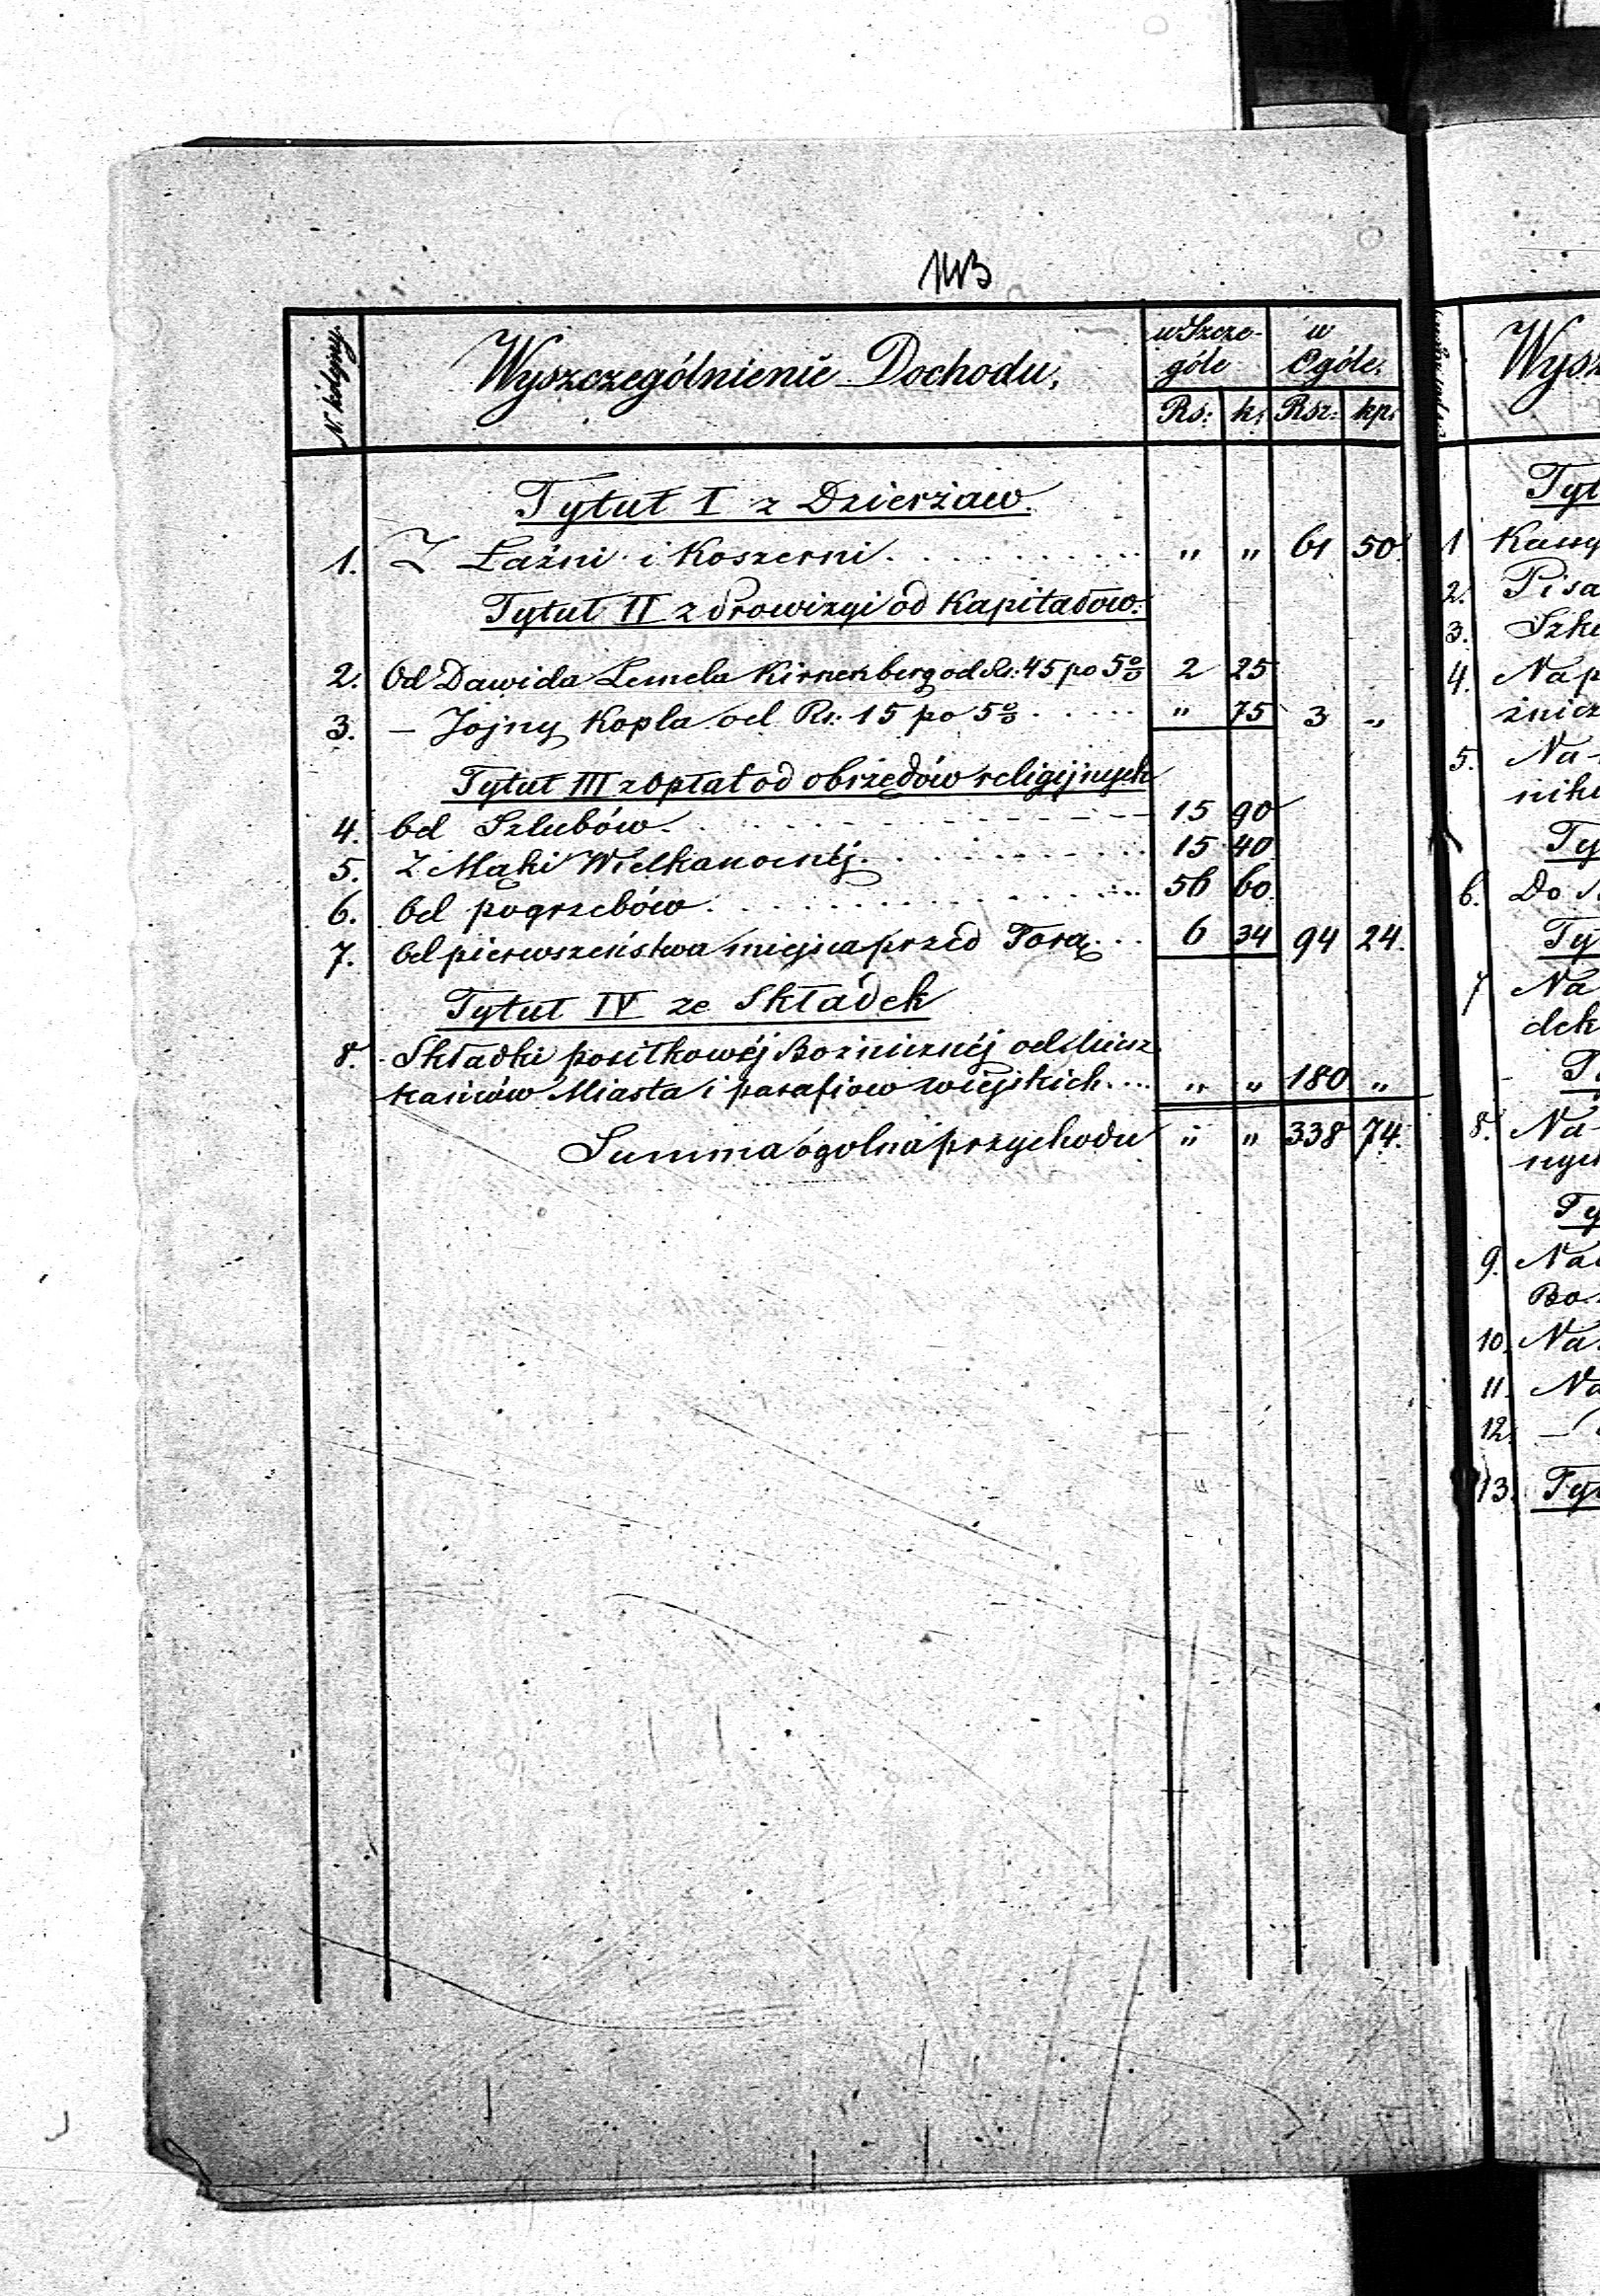 N. kolejny.
Wyszczególnienie Dochodu.
w Szcze-
góle
w
Ogóle.
Rs: k: Rsr: kp:
Tytuł I z Dzierżaw.
1. Z Łaźni i Koszerni . . . . . . . . . . " " 61 50.
Tytuł II z Prowizyi od Kapitałów.
2. Od Dawida Lemela Kirnenberg od Rs: 45 po 5% 2 25
3. — Jojny Kopla od Rs: 15 po 5% . . . . . " 75 3 "
Tytuł III z Opłat od obrzędów religijnych
4. Od Szlubów. . . . . . . . . . 15 90
5. Z Mąki Wielkanocnéj. . . . . . . . . 15 40
6. Od pogrzebów. . . . . . . . . . 56 60.
7. Od pierwszeństwa miejsca przed Torą. . . 6 34 94 24.
Tytuł IV ze Składek
8. Składki posiłkowéj Bożnicznéj od Miesz
kańców Miasta i parafiow wiejskich. . . . " " 180 "
Summa ogolna przychodu " " 338 74.
Wysz
Tyt
1
2. Pisa
3. Szko
4. Na p
5. Na
Ty
6. Do
Ty
7 Na
dek
8. Na
nych
Ty
9.
Bo
10. Na
11. Na
12. —
13. Ty